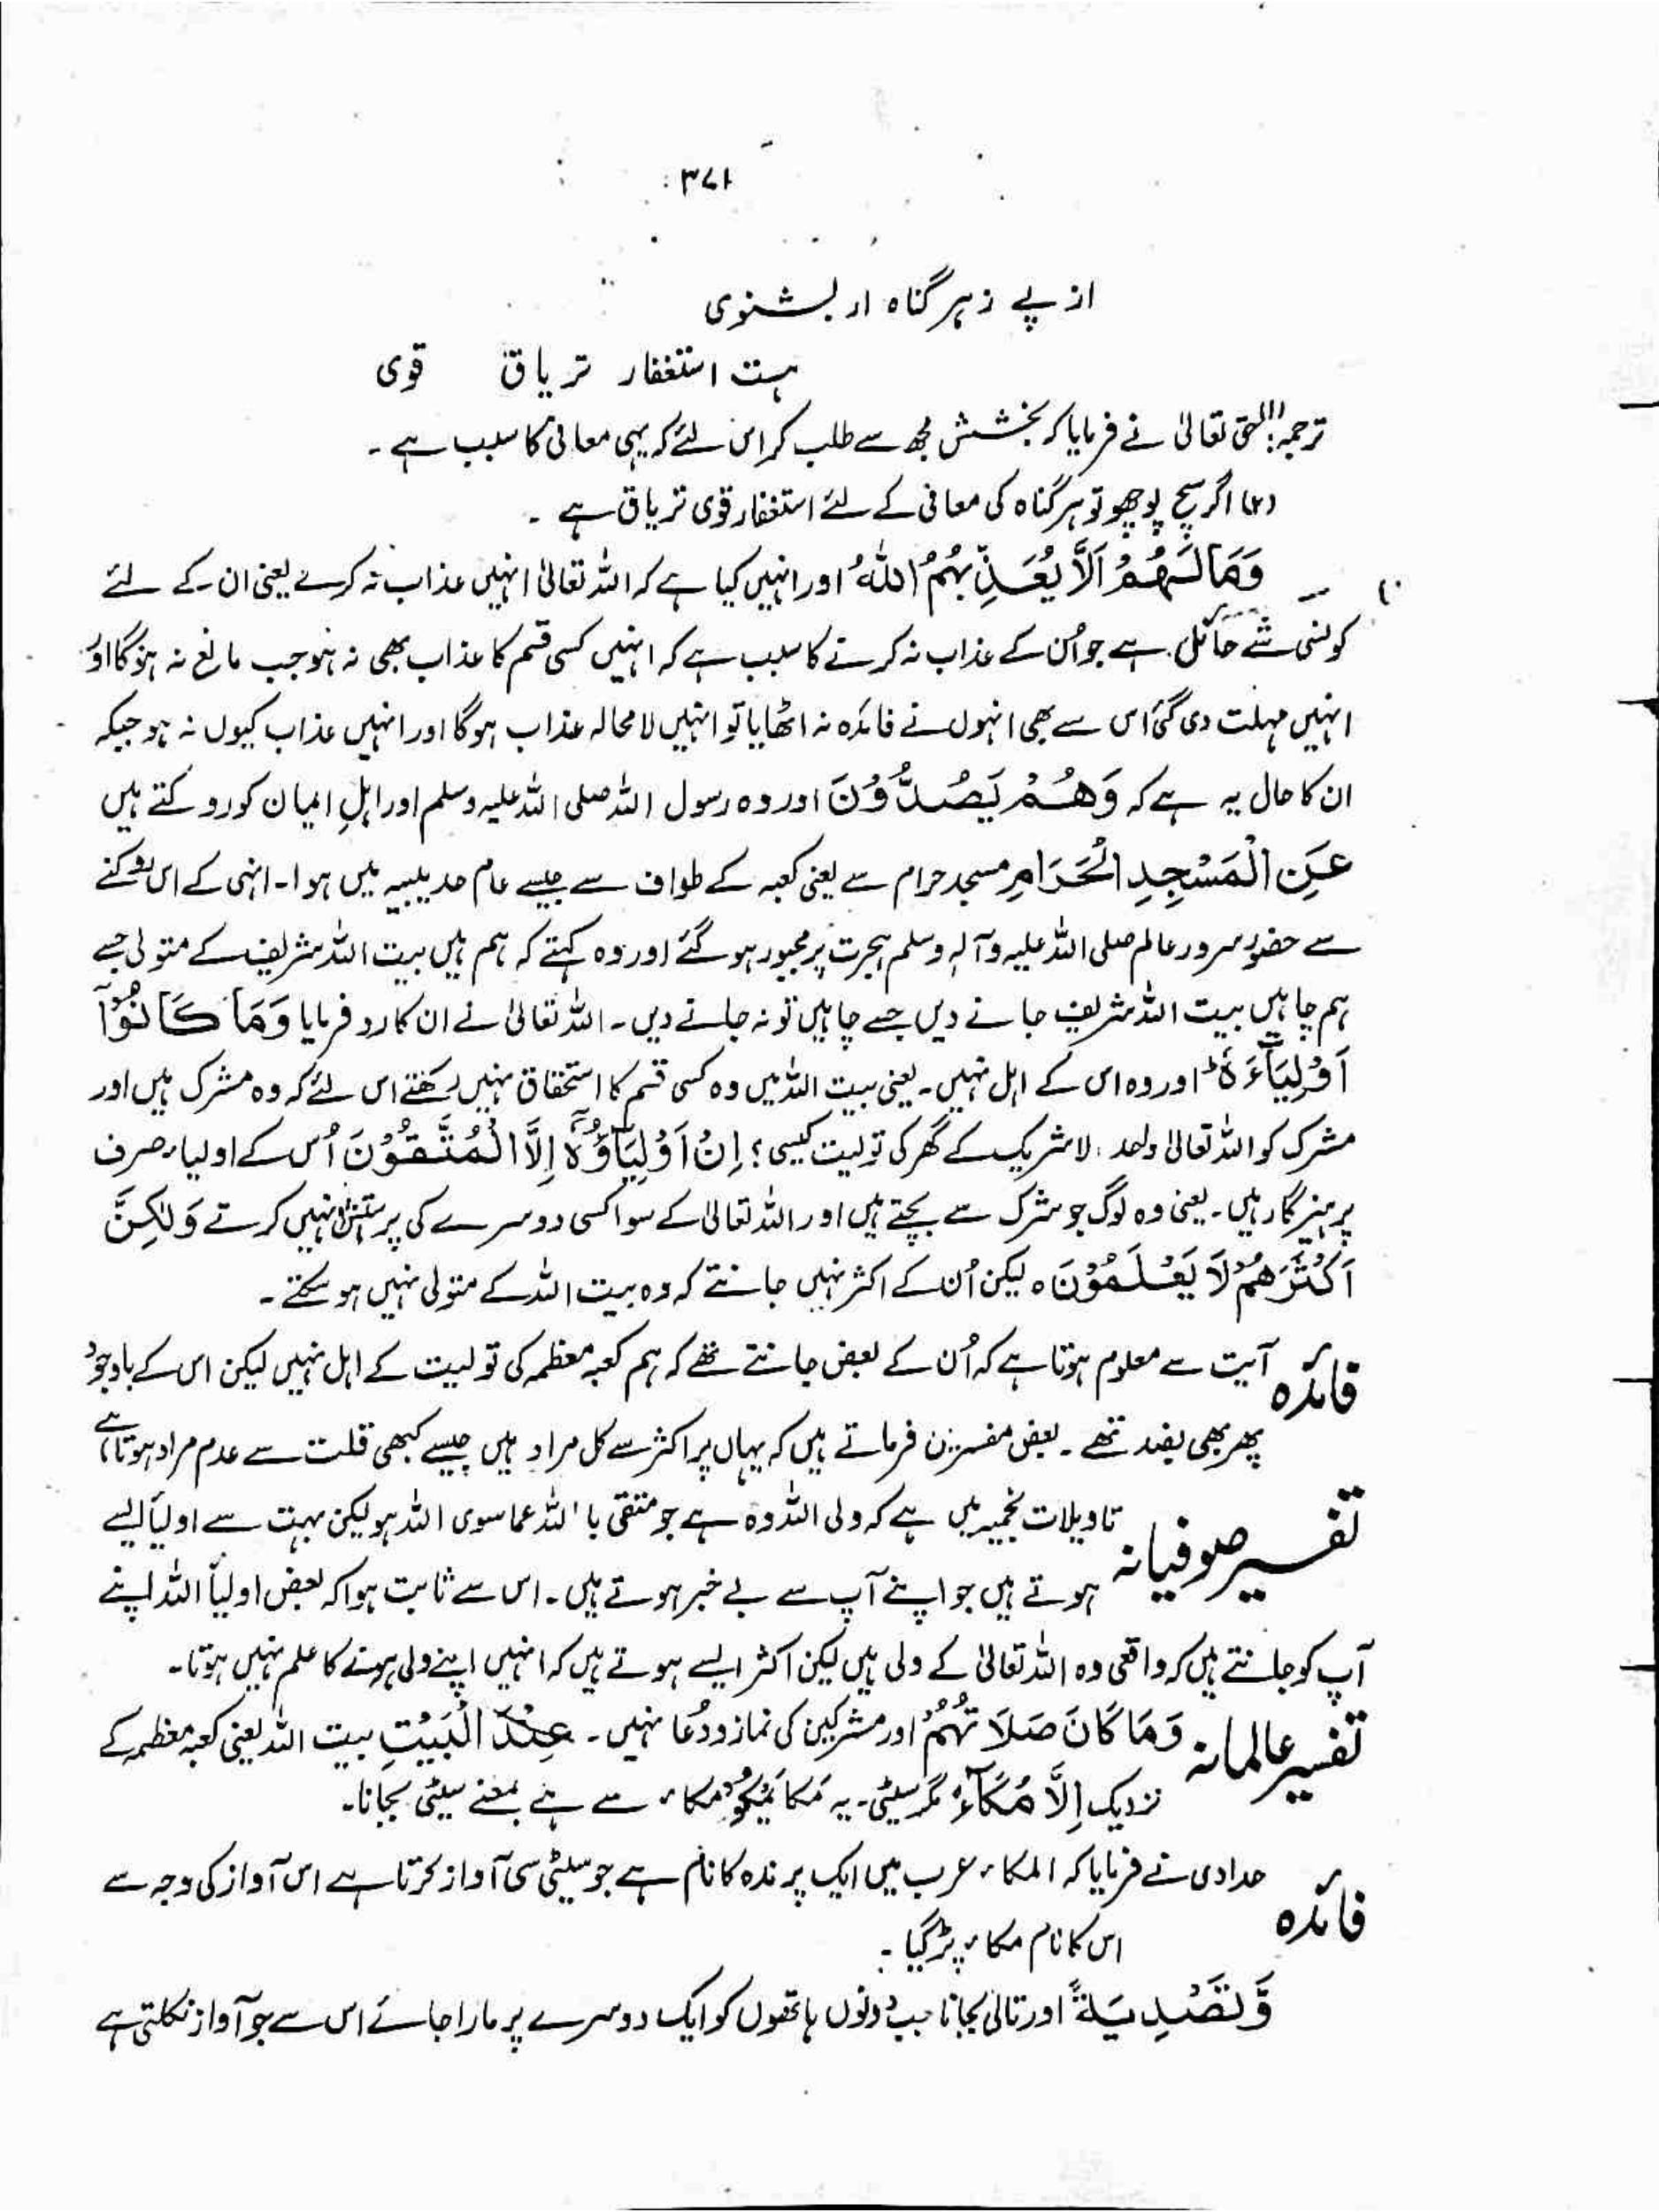 ۳۷۱
از پے زہر گناہ ار بشنوی
ہست استغفار تریاق قوی
ترجمہ: (۱) حق تعالیٰ نے فرمایا کہ بخشش مجھ سے طلب کر اس لئے کہ یہی معافی کا سبب ہے ۔
(۲) اگر سچ پوچھو تو ہر گناہ کی معافی کے لئے استغفار قوی تریاق ہے ۔
وَمَا لَهُمْ اَلَّا يُعَذِّبَهُمُ اللّٰهُ اور انہیں کیا ہے کہ اللہ تعالیٰ انہیں عذاب نہ کرے یعنی ان کے لئے
کونسی شے حائل ہے جو اُن کے عذاب نہ کرنے کا سبب ہے کہ انہیں کسی قسم کا عذاب بھی نہ ہو جب مانع نہ ہوگا اور
انہیں مہلت دی گئی اس سے بھی انہوں نے فائدہ نہ اٹھایا تو انہیں لامحالہ عذاب ہوگا اور انہیں عذاب کیوں نہ ہو جبکہ
ان کا حال یہ ہے کہ وَهُمْ يَصُدُّوْنَ اور وہ رسول اللہ صلی اللہ علیہ وسلم اور اہلِ ایمان کو روکتے ہیں
عَنِ الْمَسْجِدِ الْحَرَامِ مسجد حرام سے یعنی کعبہ کے طواف سے جیسے عام حدیبیہ میں ہوا۔ انہی کے اس روکنے
سے حضور سرور عالم صلی اللہ علیہ وآلہ وسلم ہجرت پر مجبور ہو گئے اور وہ کہتے کہ ہم ہیں بیت اللہ شریف کے متولی جسے
ہم چاہیں بیت اللہ شریف جانے دیں جسے چاہیں تو نہ جانے دیں۔ اللہ تعالیٰ نے ان کا رد فرمایا وَمَا كَانُوْٓا
اَوْلِيَآءَهٗ ؕ اور وہ اس کے اہل نہیں۔ یعنی بیت اللہ میں وہ کسی قسم کا استحقاق نہیں رکھتے اس لئے کہ وہ مشرک ہیں اور
مشرک کو اللہ تعالیٰ واحد ، لاشریک کے گھر کی تولیت کیسی؟ اِنْ اَوْلِيَآؤُهٗٓ اِلَّا الْمُتَّقُوْنَ اُس کے اولیاء صرف
پرہیزگار ہیں۔ یعنی وہ لوگ جو شرک سے بچتے ہیں اور اللہ تعالیٰ کے سوا کسی دوسرے کی پرستش نہیں کرتے وَلٰكِنَّ
اَكْثَرَهُمْ لَا يَعْلَمُوْنَ ہ لیکن اُن کے اکثر نہیں جانتے کہ وہ بیت اللہ کے متولی نہیں ہو سکتے۔
فائدہ آیت سے معلوم ہوتا ہے کہ اُن کے بعض جانتے تھے کہ ہم کعبہ معظمہ کی تولیت کے اہل نہیں لیکن اس کے باوجود
پھر بھی بضد تھے ۔ بعض مفسرین فرماتے ہیں کہ یہاں پر اکثر سے کل مراد ہیں جیسے کبھی قلت سے عدم مراد ہوتا ہے
تفسیر صوفیانہ تاویلات نجمیہ میں ہے کہ ولی اللہ وہ ہے جو متقی باللہ عما سوی اللہ ہو لیکن بہت سے اولیأ ایسے
ہوتے ہیں جو اپنے آپ سے بے خبر ہوتے ہیں۔ اس سے ثابت ہوا کہ بعض اولیأ اللہ اپنے
آپ کو جانتے ہیں کہ واقعی وہ اللہ تعالیٰ کے ولی ہیں لیکن اکثر ایسے ہوتے ہیں کہ انہیں اپنے ولی ہونے کا علم نہیں ہوتا۔
تفسیر عالمانہ وَمَا كَانَ صَلَاتُهُمْ اور مشرکین کی نماز و دُعا نہیں ۔ عِنْدَ الْبَيْتِ بیت اللہ یعنی کعبہ معظمہ کے
نزدیک اِلَّا مُكَآءً مگر سیٹی۔ یہ مَکَا یَمْکُوْ مکاء سے ہے بمعنے سیٹی بجانا۔
فائدہ حدادی نے فرمایا کہ المکاء عرب میں ایک پرندہ کا نام ہے جو سیٹی سی آواز کرتا ہے اس آواز کی وجہ سے
اس کا نام مکاء پڑ گیا ۔
وَّتَصْدِيَةً اور تالی بجانا جب دونوں ہاتھوں کو ایک دوسرے پر مارا جائے اس سے جو آواز نکلتی ہے